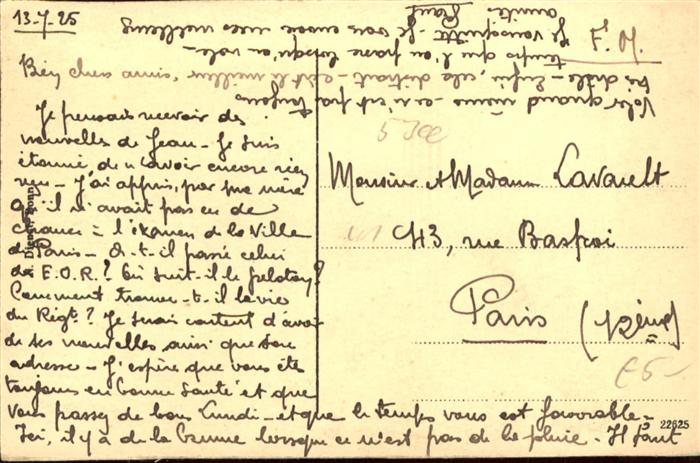 13-7-25
Bien chers amis,
Je pensais recevoir des
nouvelles de Jean - Je suis
étonné de n'avoir encore rien
reçu - J'ai appris, par ma mère
qu'il n'avait pas eu de
chance à l'examen de la Ville
de Paris - A-t-il passé celui
des E.O.R.? Où suit-il le peloton?
Comment trouve-t-il la vie
du Régt.? Je serais content d'avoir
de ses nouvelles ainsi que son
adresse - J'espère que vous êtes
toujours en bonne santé et que
vous passez de bons Lundi - et que le temps vous est favorable -
Ici, il y a de la brume lorsque ce n'est pas de la pluie - Il faut
voler quand même - ce n'est pas toujours
très drôle - Enfin, cela distrait - c'est le meilleur
temps que l'on passe lorsqu'on vole -
Je vous quitte - Je vous envoie mes meilleures
amitiés
F.M.
Monsieur et Madame Lavault
43, rue Basfroi
Paris (12ème)
E5-
22625